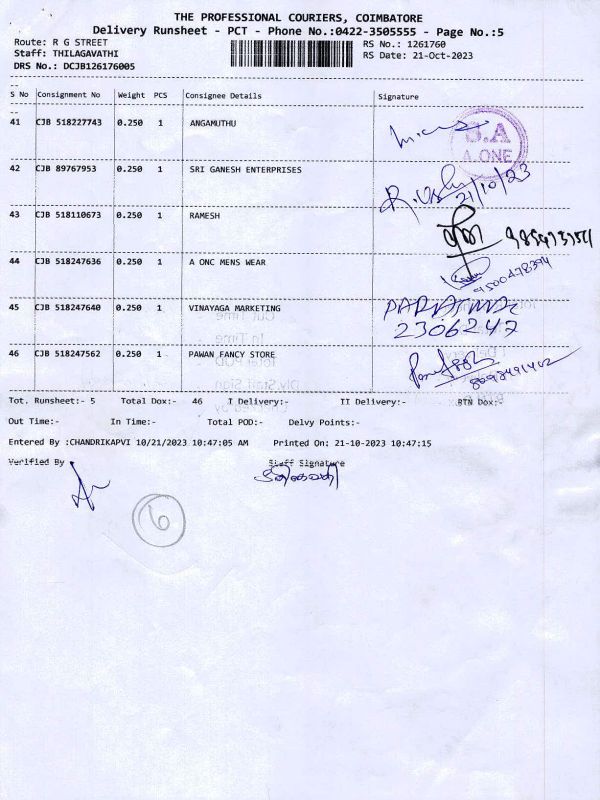 THE PROFESSIONAL COURIERS, COIMBATORE
Delivery Runsheet - PCT - Phone No.:0422-3505555 - Page No.:5
Route: R G STREET
RS No.: 1261760
Staff: THILAGAVATHI
RS Date: 21-Oct-2023
DRS No.: DCJB126176005
S No Consignment No Weight PCS Consignee Details Signature
41 CJB 518227743 0.250 1 ANGAMUTHU
J.A
A.ONE
42 CJB 89767953 0.250 1 SRI GANESH ENTERPRISES
21/10/23
43 CJB 518110673 0.250 1 RAMESH
44 CJB 518247636 0.250 1 A ONC MENS WEAR
9500478394
45 CJB 518247640 0.250 1 VINAYAGA MARKETING
2306247
46 CJB 518247562 0.250 1 PAWAN FANCY STORE
8098491402
Tot. Runsheet:- 5 Total Dox:- 46 I Delivery:- II Delivery:- RTN Dox:-
Out Time:- In Time:- Total POD:- Delvy Points:-
Entered By :CHANDRIKAPVI 10/21/2023 10:47:05 AM Printed On: 21-10-2023 10:47:15
Verified By Staff Signature
6